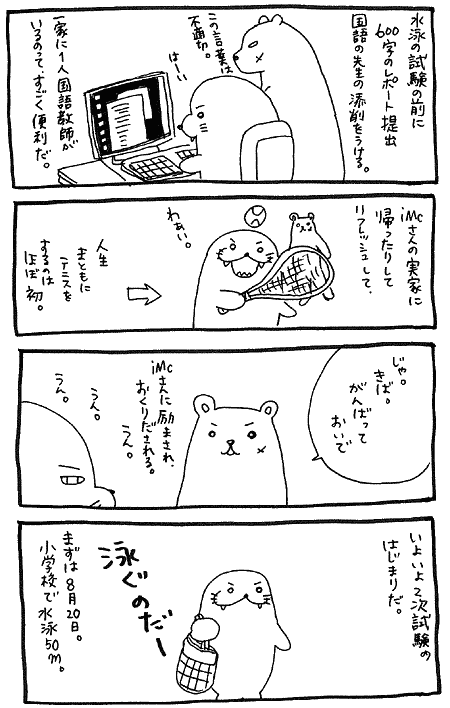 水泳の試験の前に
600字のレポート提出
国語の先生の添削をうける。
この言葉は
不適切。
はーい
一家に1人
国語教師が
いるのって、すごく
便利だ。
iMcさんの実家に
帰ったりして
リフレッシュして、
わぁい。
人生
まともに
テニスを
するのは
ほぼ初。
じゃ。
きば。
がんばって
おいで
iMc
さんに励まされ、
おくりだされる。
うん。
うん。
うん。
いよいよ2次試験の
はじまりだ。
泳ぐのだー
まずは8月20日。
小学校で水泳50m。